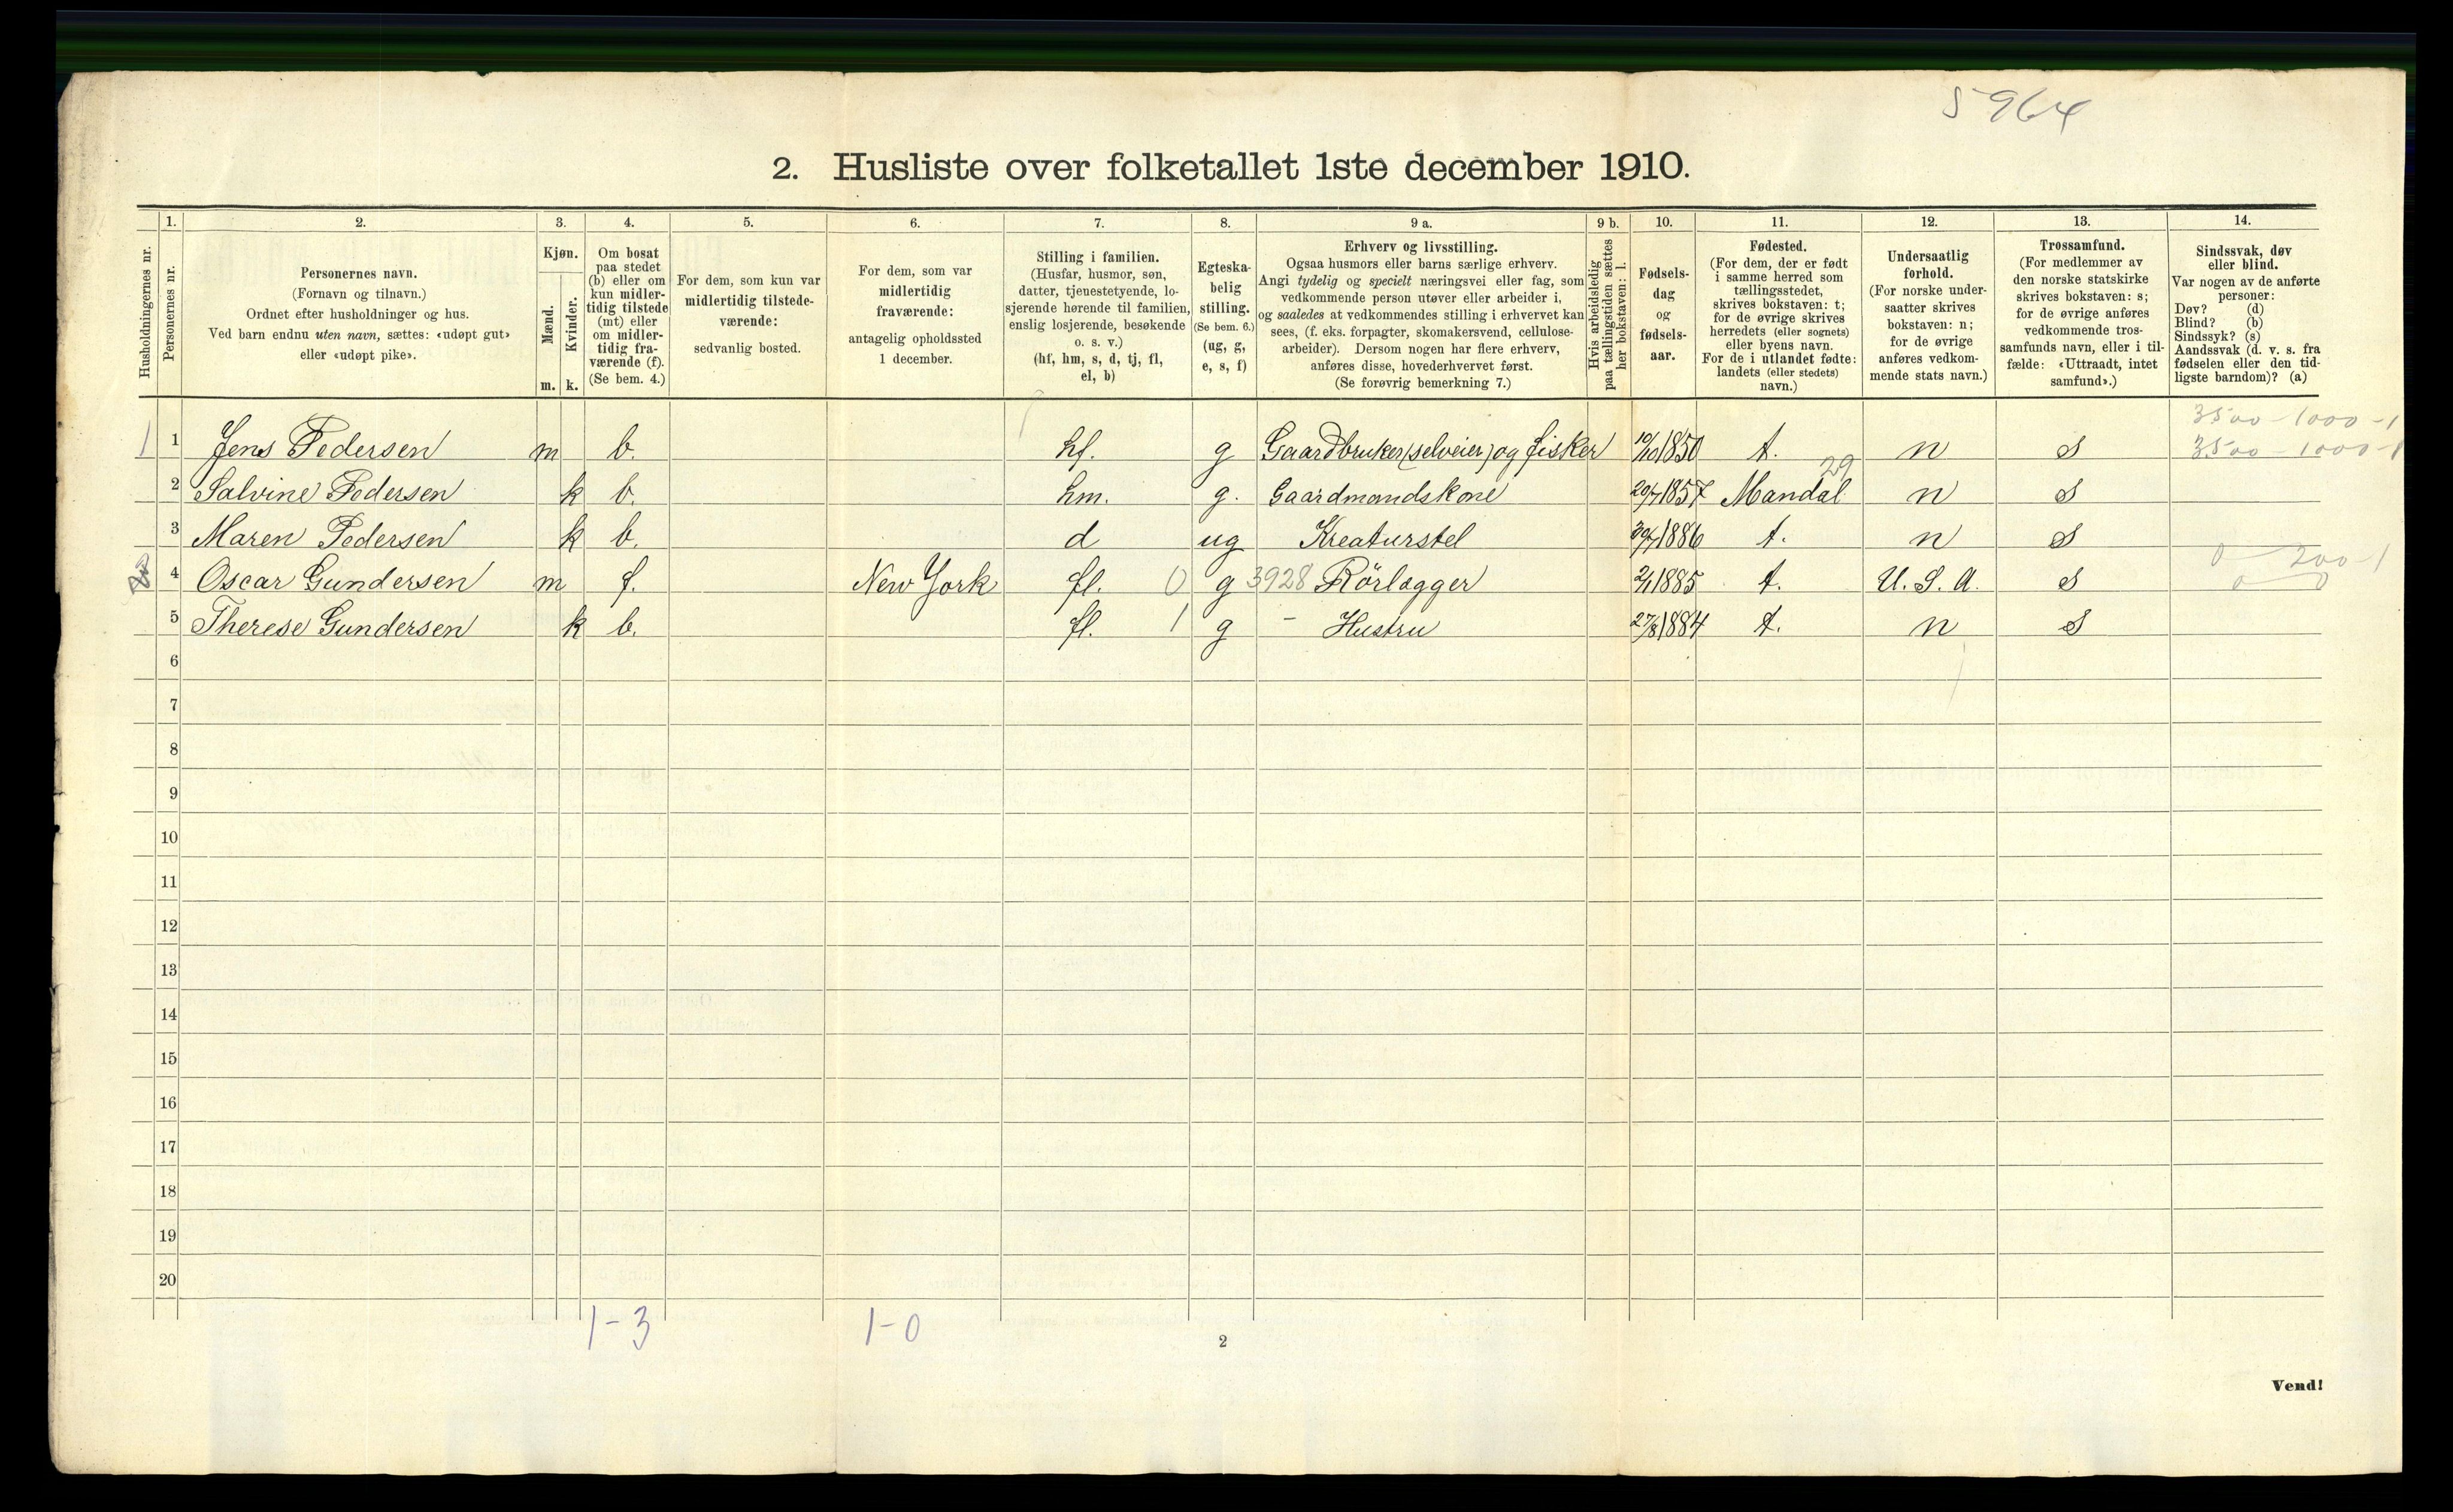 5964
2. Husliste over folketallet 1ste december 1910.
Husholdningernes nr.
1.
Personernes nr.
2.
Personernes navn.
(Fornavn og tilnavn.)
Ordnet efter husholdninger og hus.
Ved barn endnu uten navn, sættes: «udøpt gut»
eller «udøpt pike».
3.
Kjøn.
Mænd.
Kvinder.
m. k.
4.
Om bosat
paa stedet
(b) eller om
kun midler-
tidig tilstede
(mt) eller
om midler-
tidig fra-
værende (f).
(Se bem. 4.)
5.
For dem, som kun var
midlertidig tilstede-
værende:
sedvanlig bosted.
6.
For dem, som var
midlertidig
fraværende:
antagelig opholdssted
1 december.
7.
Stilling i familien.
(Husfar, husmor, søn,
datter, tjenestetyende, lo-
sjerende hørende til familien,
enslig losjerende, besøkende
o. s. v.)
(hf, hm, s, d, tj, fl,
el, b)
8.
Egteska-
belig
stilling.
(Se bem. 6.)
(ug, g,
e, s, f)
9 a.
Erhverv og livsstilling.
Ogsaa husmors eller barns særlige erhverv.
Angi tydelig og specielt næringsvei eller fag, som
vedkommende person utøver eller arbeider i,
og saaledes at vedkommendes stilling i erhvervet kan
sees, (f. eks. forpagter, skomakersvend, cellulose-
arbeider). Dersom nogen har flere erhverv,
anføres disse, hovederhvervet først.
(Se forøvrig bemerkning 7.)
9 b.
Hvis arbeidsledig
paa tællingstiden sættes
her bokstaven: l.
10.
Fødsels-
dag
og
fødsels-
aar.
11.
Fødested.
(For dem, der er født
i samme herred som
tællingsstedet,
skrives bokstaven: t;
for de øvrige skrives
herredets (eller sognets)
eller byens navn.
For de i utlandet fødte:
landets (eller stedets)
navn.)
12.
Undersaatlig
forhold.
(For norske under-
saatter skrives
bokstaven: n;
for de øvrige
anføres vedkom-
mende stats navn.)
13.
Trossamfund.
(For medlemmer av
den norske statskirke
skrives bokstaven: s;
for de øvrige anføres
vedkommende tros-
samfunds navn, eller i til-
fælde: «Uttraadt, intet
samfund».)
14.
Sindssvak, døv
eller blind.
Var nogen av de anførte
personer:
Døv? (d)
Blind? (b)
Sindssyk? (s)
Aandssvak (d. v. s. fra
fødselen eller den tid-
ligste barndom)? (a)
3500 - 1000 - 1
1 1 Jens Pedersen m b. hf. g Gaardbruker (selveier) og fisker 10/10 1850 t. n s 3500 - 1000 - 1
29
2 Salvine Pedersen k b. hm. g. Gaardmandskone 20/7 1857 Mandal n s
3 Maren Pedersen k b. d ug Kreaturstel 30/7 1886 t. n s
0 200-1
4 Oscar Gundersen m f. New York fl. 0 g 3928 Rörlægger 2/1 1885 t. U. S. A. s 0 0
5 Therese Gundersen k b. fl. 1 g - Hustru 27/8 1884 t. n s
6
7
8
9
10
11
12
13
14
15
16
17
18
19
20
1-3 1-0
2
Vend!